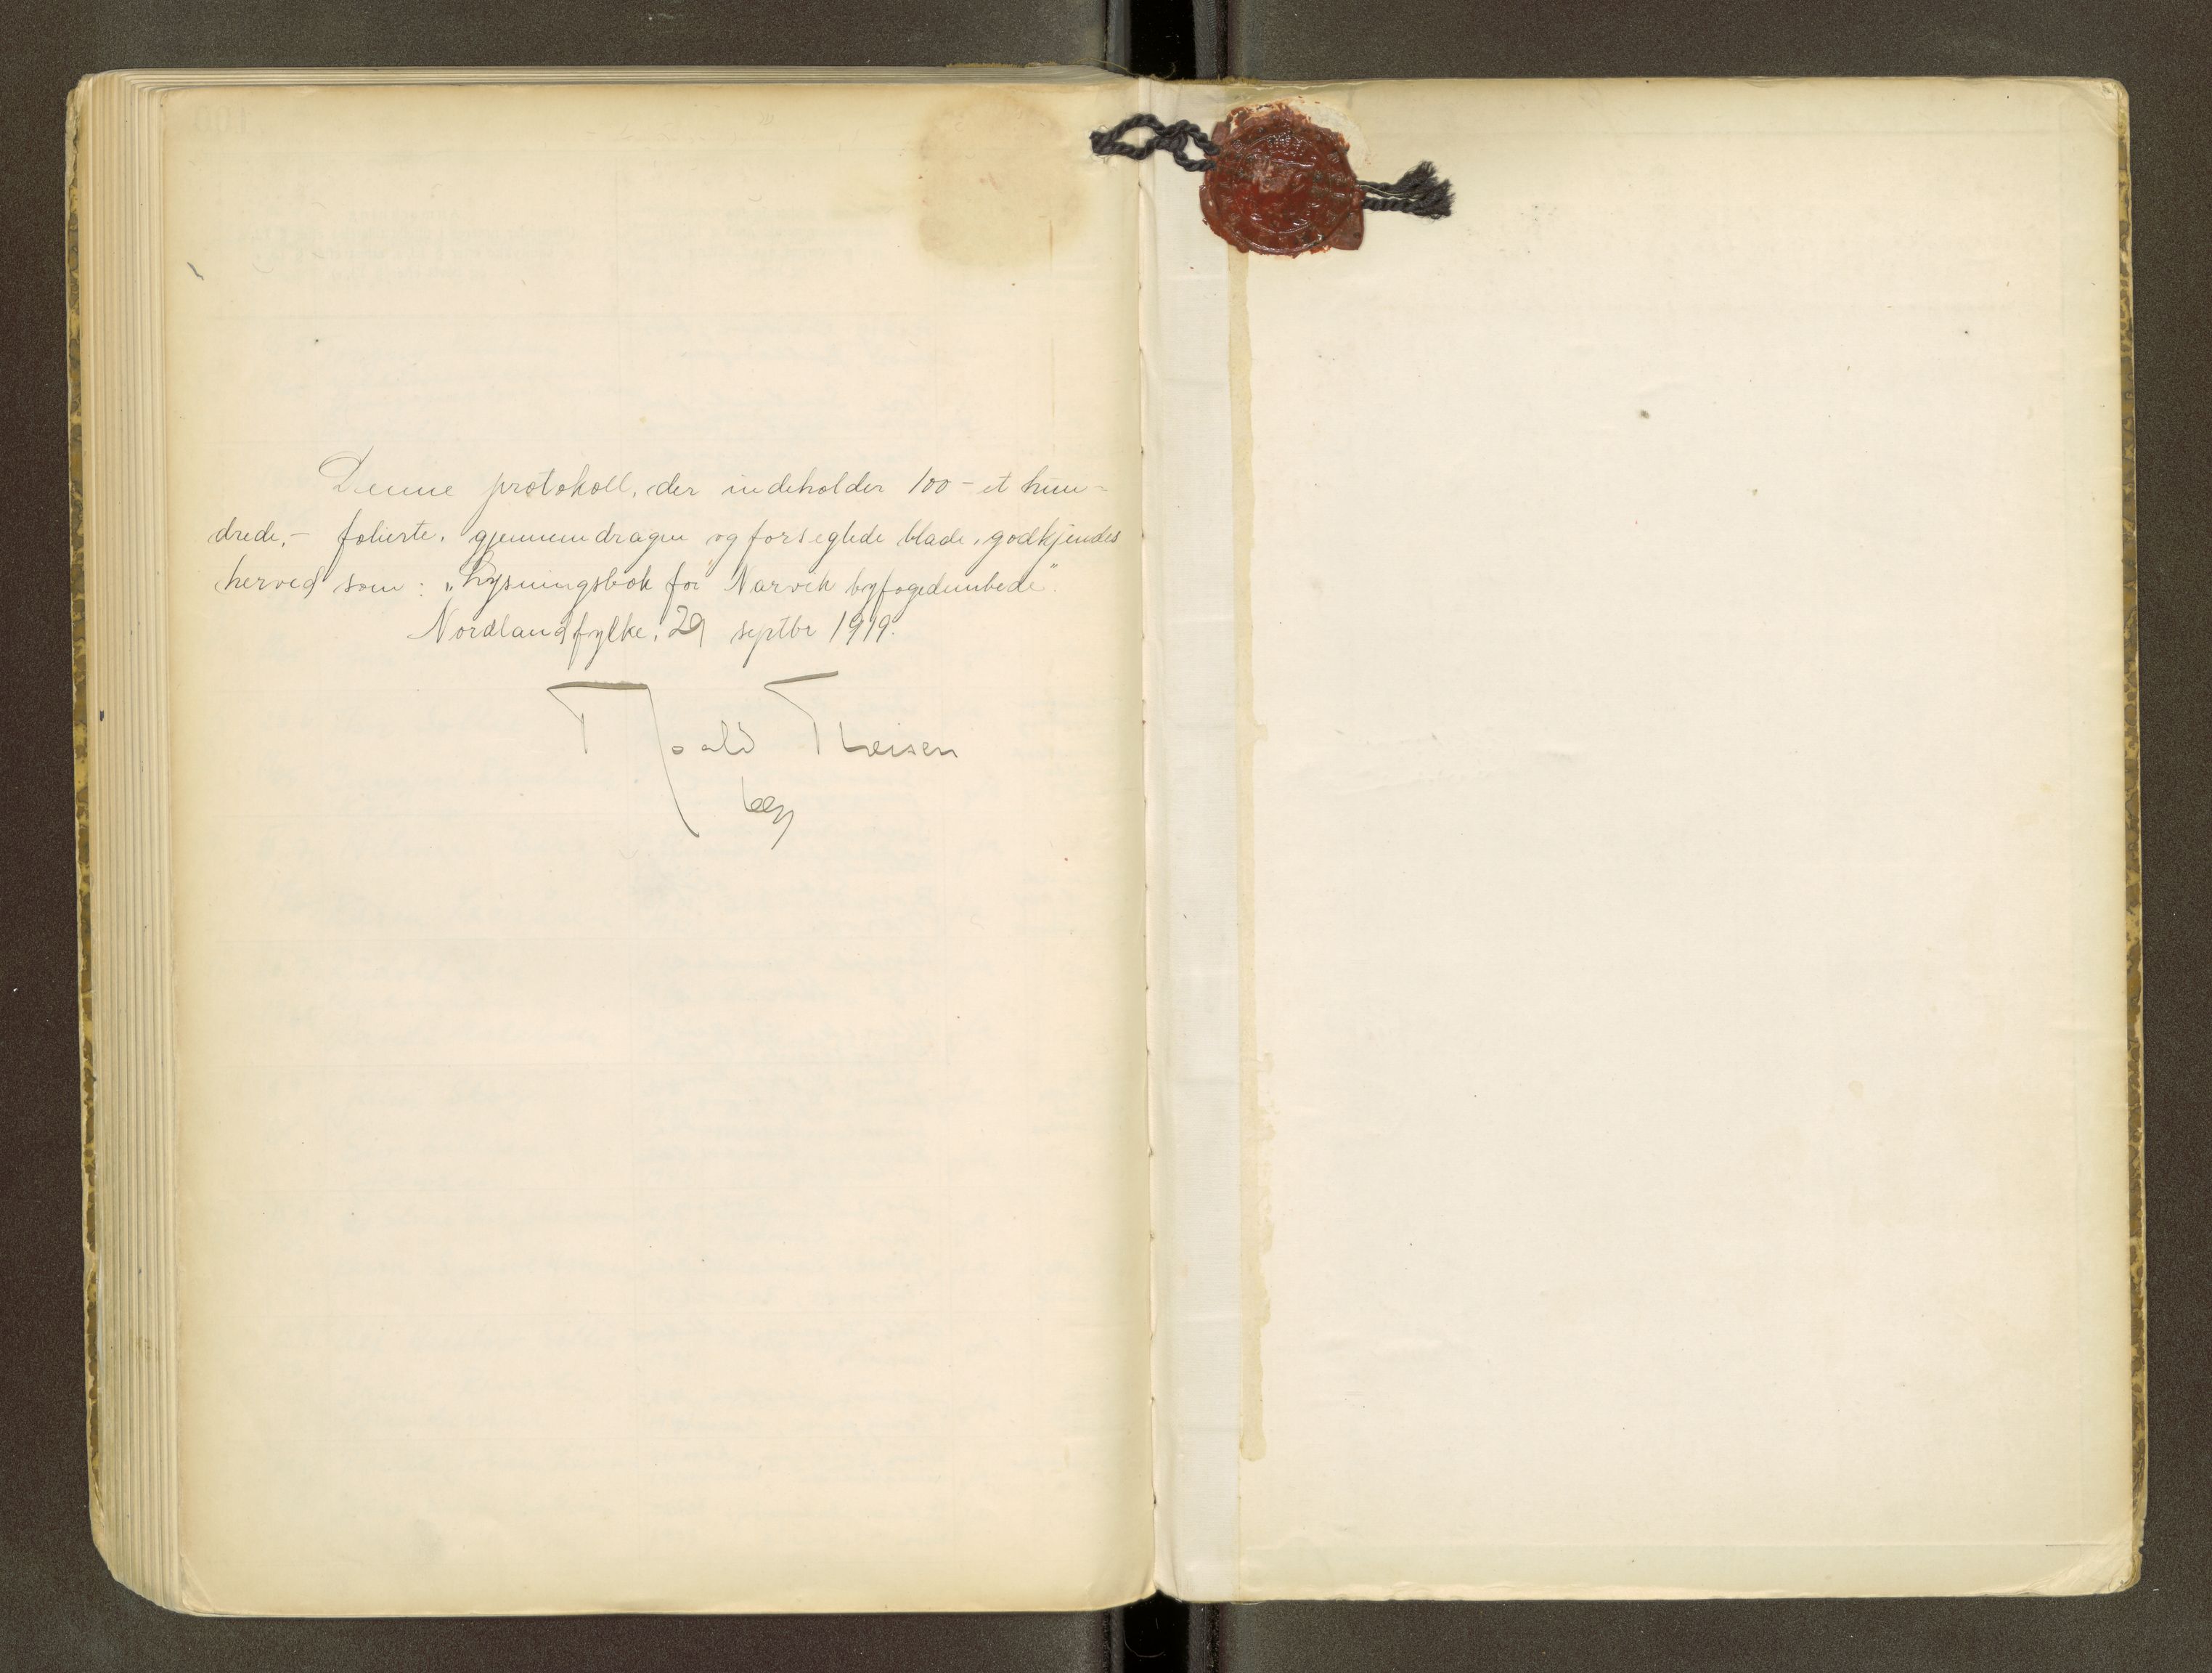 Denne protokoll, der indeholder 100 - et hun-
drede, - folierte, gjennemdragne og forseglede blade, godkjendes
herved som: „Lysningsbok for Narvik byfogedembede".
Nordland fylke, 29 septbr 1919.
Theisen